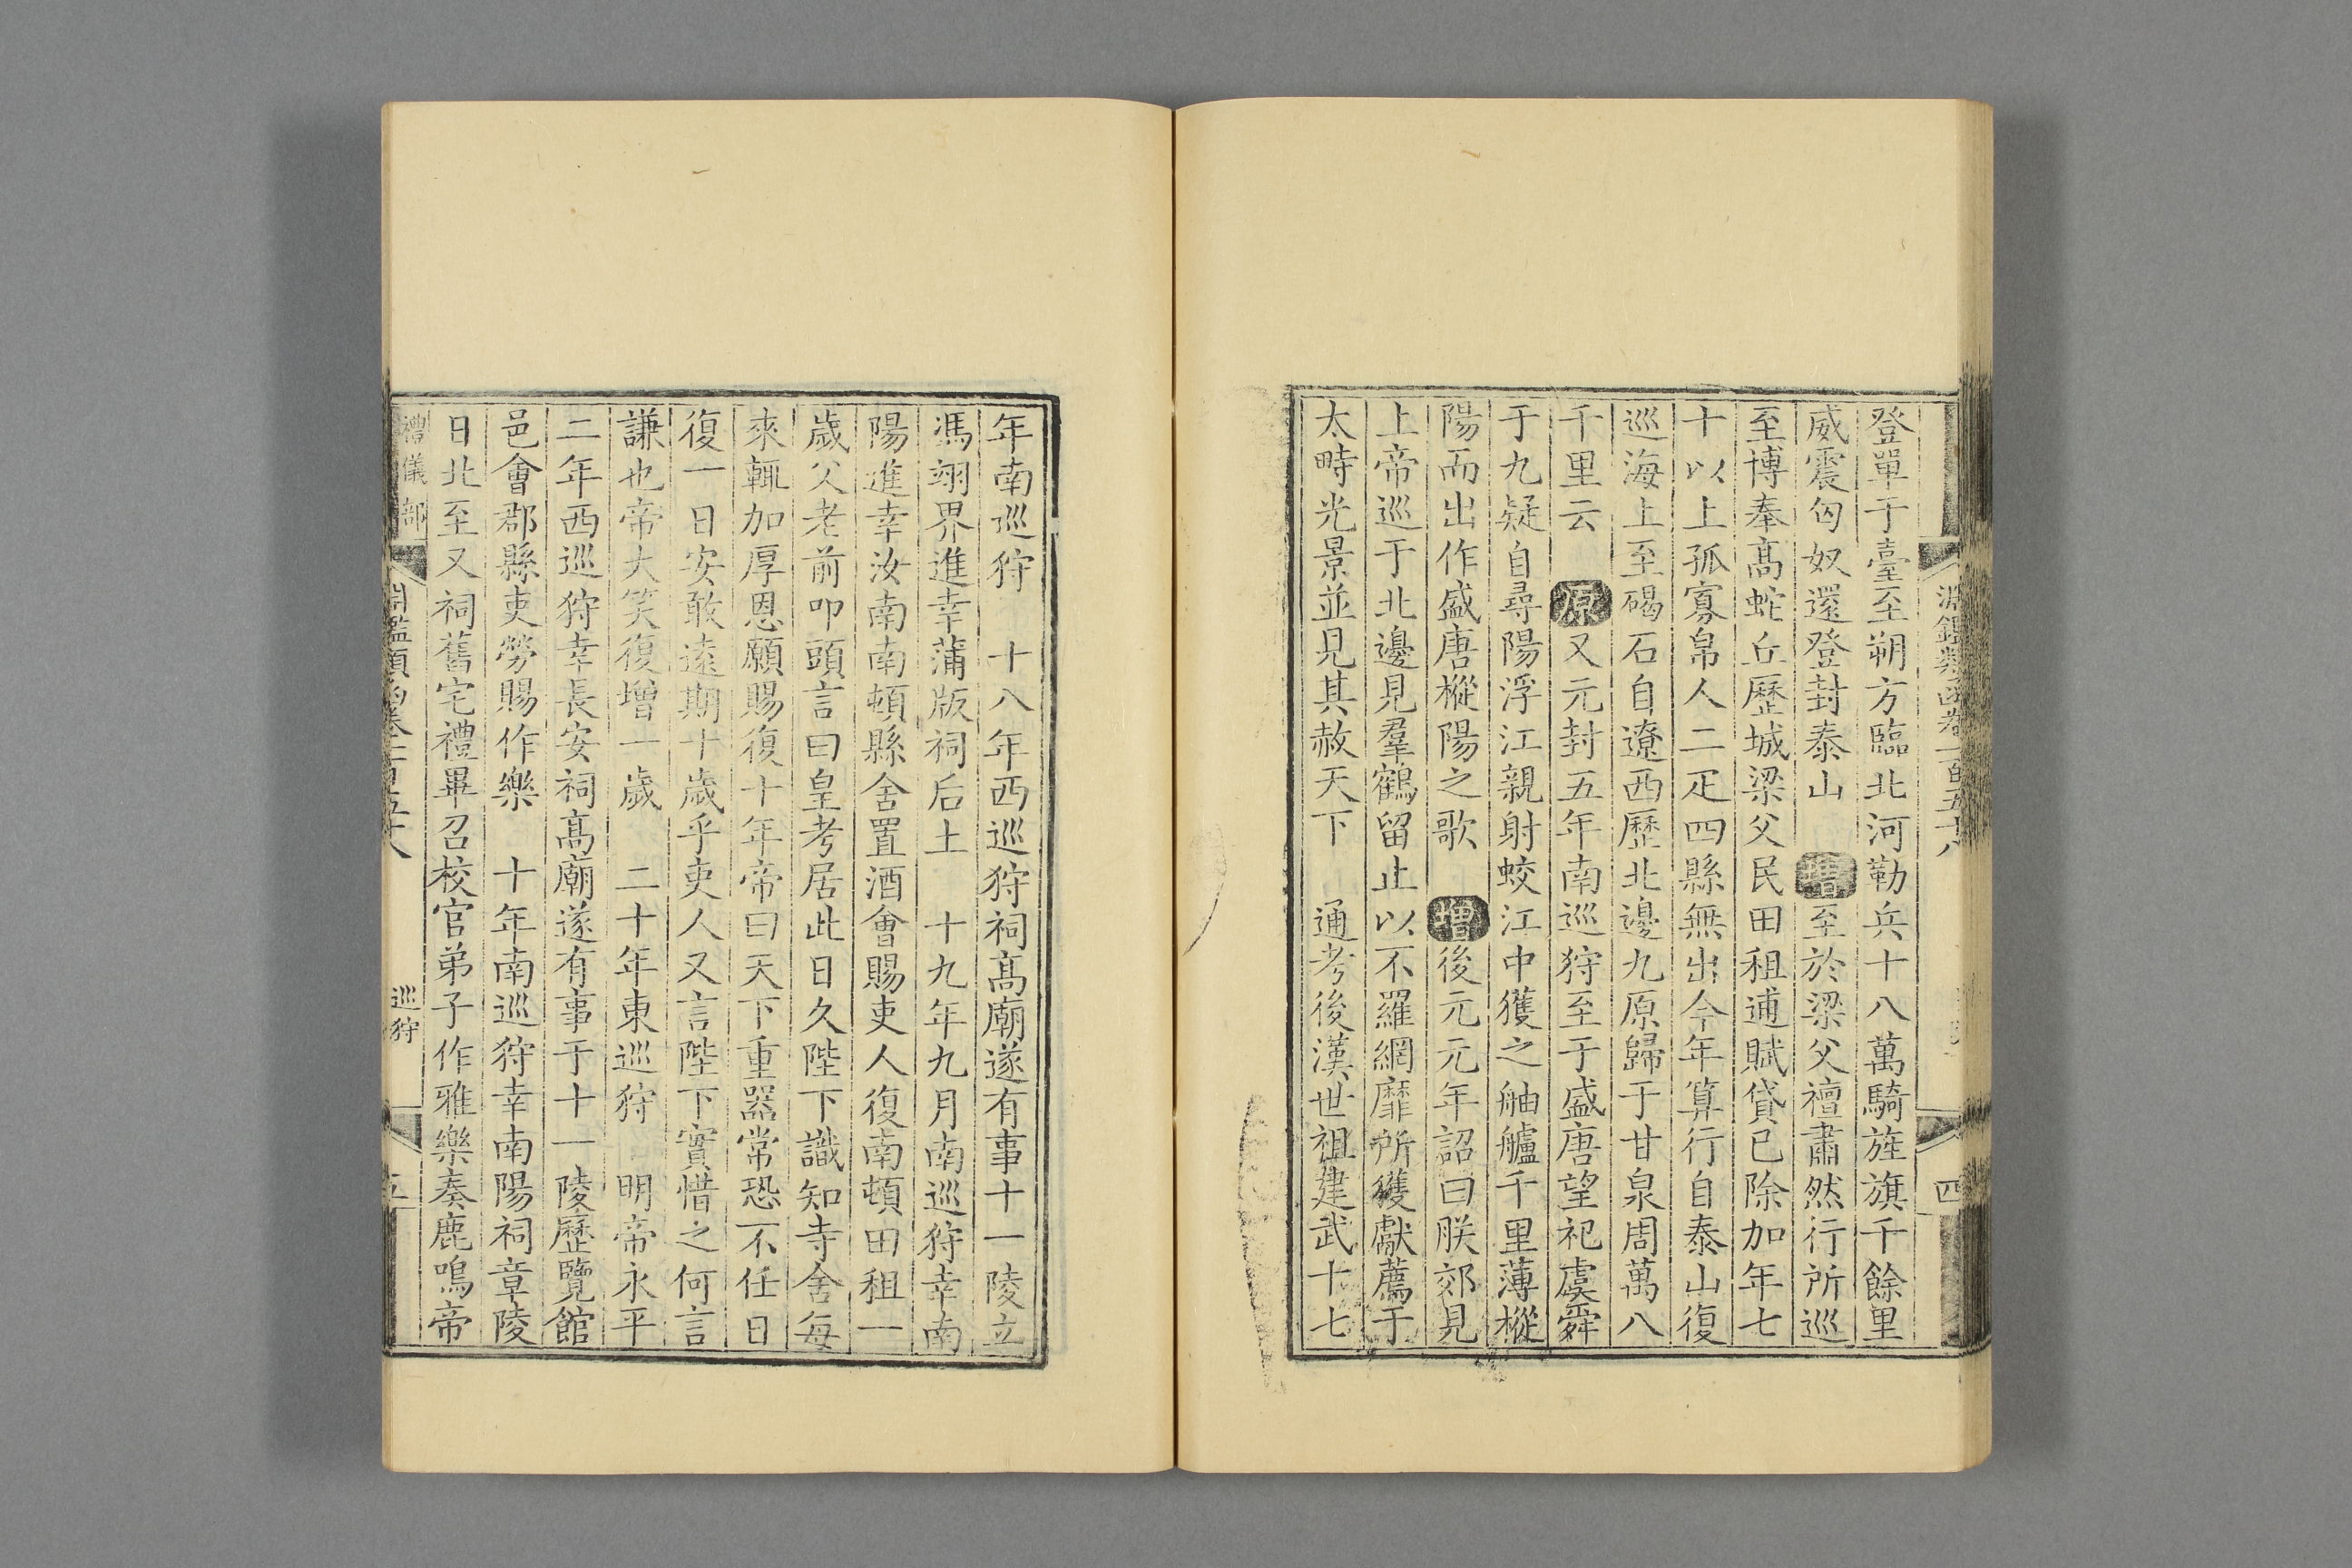 淵鑑類函卷一百五十八
四
登單于臺至朔方臨北河勒兵十八萬騎旌旗千餘里
威震匈奴還登封泰山 增至於梁父禮肅然行所巡
至博奉高蛇丘歷城梁父民田租逋賦貸已除加年七
十以上孤寡帛人二疋四縣無出今年算行自泰山復
巡海上至碣石自遼西歷北邊九原歸于甘泉周萬八
千里云 原又元封五年南巡狩至于盛唐望祀虞舜
于九疑自尋陽浮江親射蛟江中獲之舳艫千里薄樅
陽而出作盛唐樅陽之歌 增後元元年詔曰朕郊見
上帝巡于北邊見羣鶴留止以不羅網靡所獲獻薦于
太畤光景並見其赦天下 通考後漢世祖建武十七
年南巡狩 十八年西巡狩祠高廟遂有事十一陵立
馮翊界進幸蒲版祠后土 十九年九月南巡狩幸南
陽進幸汝南南頓縣舍置酒會賜吏人復南頓田租一
歲父老前叩頭言曰皇考居此日久陛下識知寺舍每
來輒加厚恩願賜復十年帝曰天下重器常恐不任日
復一日安敢遠期十歲乎吏人又言陛下實惜之何言
謙也帝大笑復增一歲 二十年東巡狩 明帝永平
二年西巡狩幸長安祠高廟遂有事于十一陵歷覽館
邑會郡縣吏勞賜作樂 十年南巡狩幸南陽祠章陵
日北至又祠舊宅禮畢召校官弟子作雅樂奏鹿鳴帝
禮儀部
淵鑑類函卷一百五十八
巡狩
五